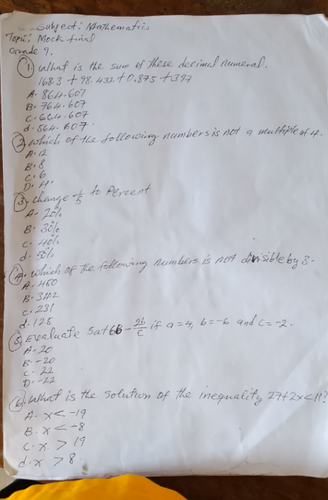 Subject: Mathematics
Topic: Mock final
Grade 9.
① What is the sum of these decimal numeral.
168.3 + 98.432 + 0.875 + 397
A. 864.607
B. 764.607
C. 664.607
d. 564.607.
② which of the following numbers is not a multiple of 4.
A. 12
B. 8
C. 6
D. 4
③ change 1/5 to Percent
A. 20%
B. 30%
C. 40%
d. 50%
④ which of the following numbers is not divisible by 3.
A. 450
B. 342
C. 231
d. 128
⑤ Evaluate 5a+6b - 2b/c if a = 4, b = -6 and c = -2.
A. 20
B. -20
C. 22
D. -22
⑥ What is the solution of the inequality 27+2x < 11?
A. x < -19
B. x < -8
C. x > 19
d. x > 8